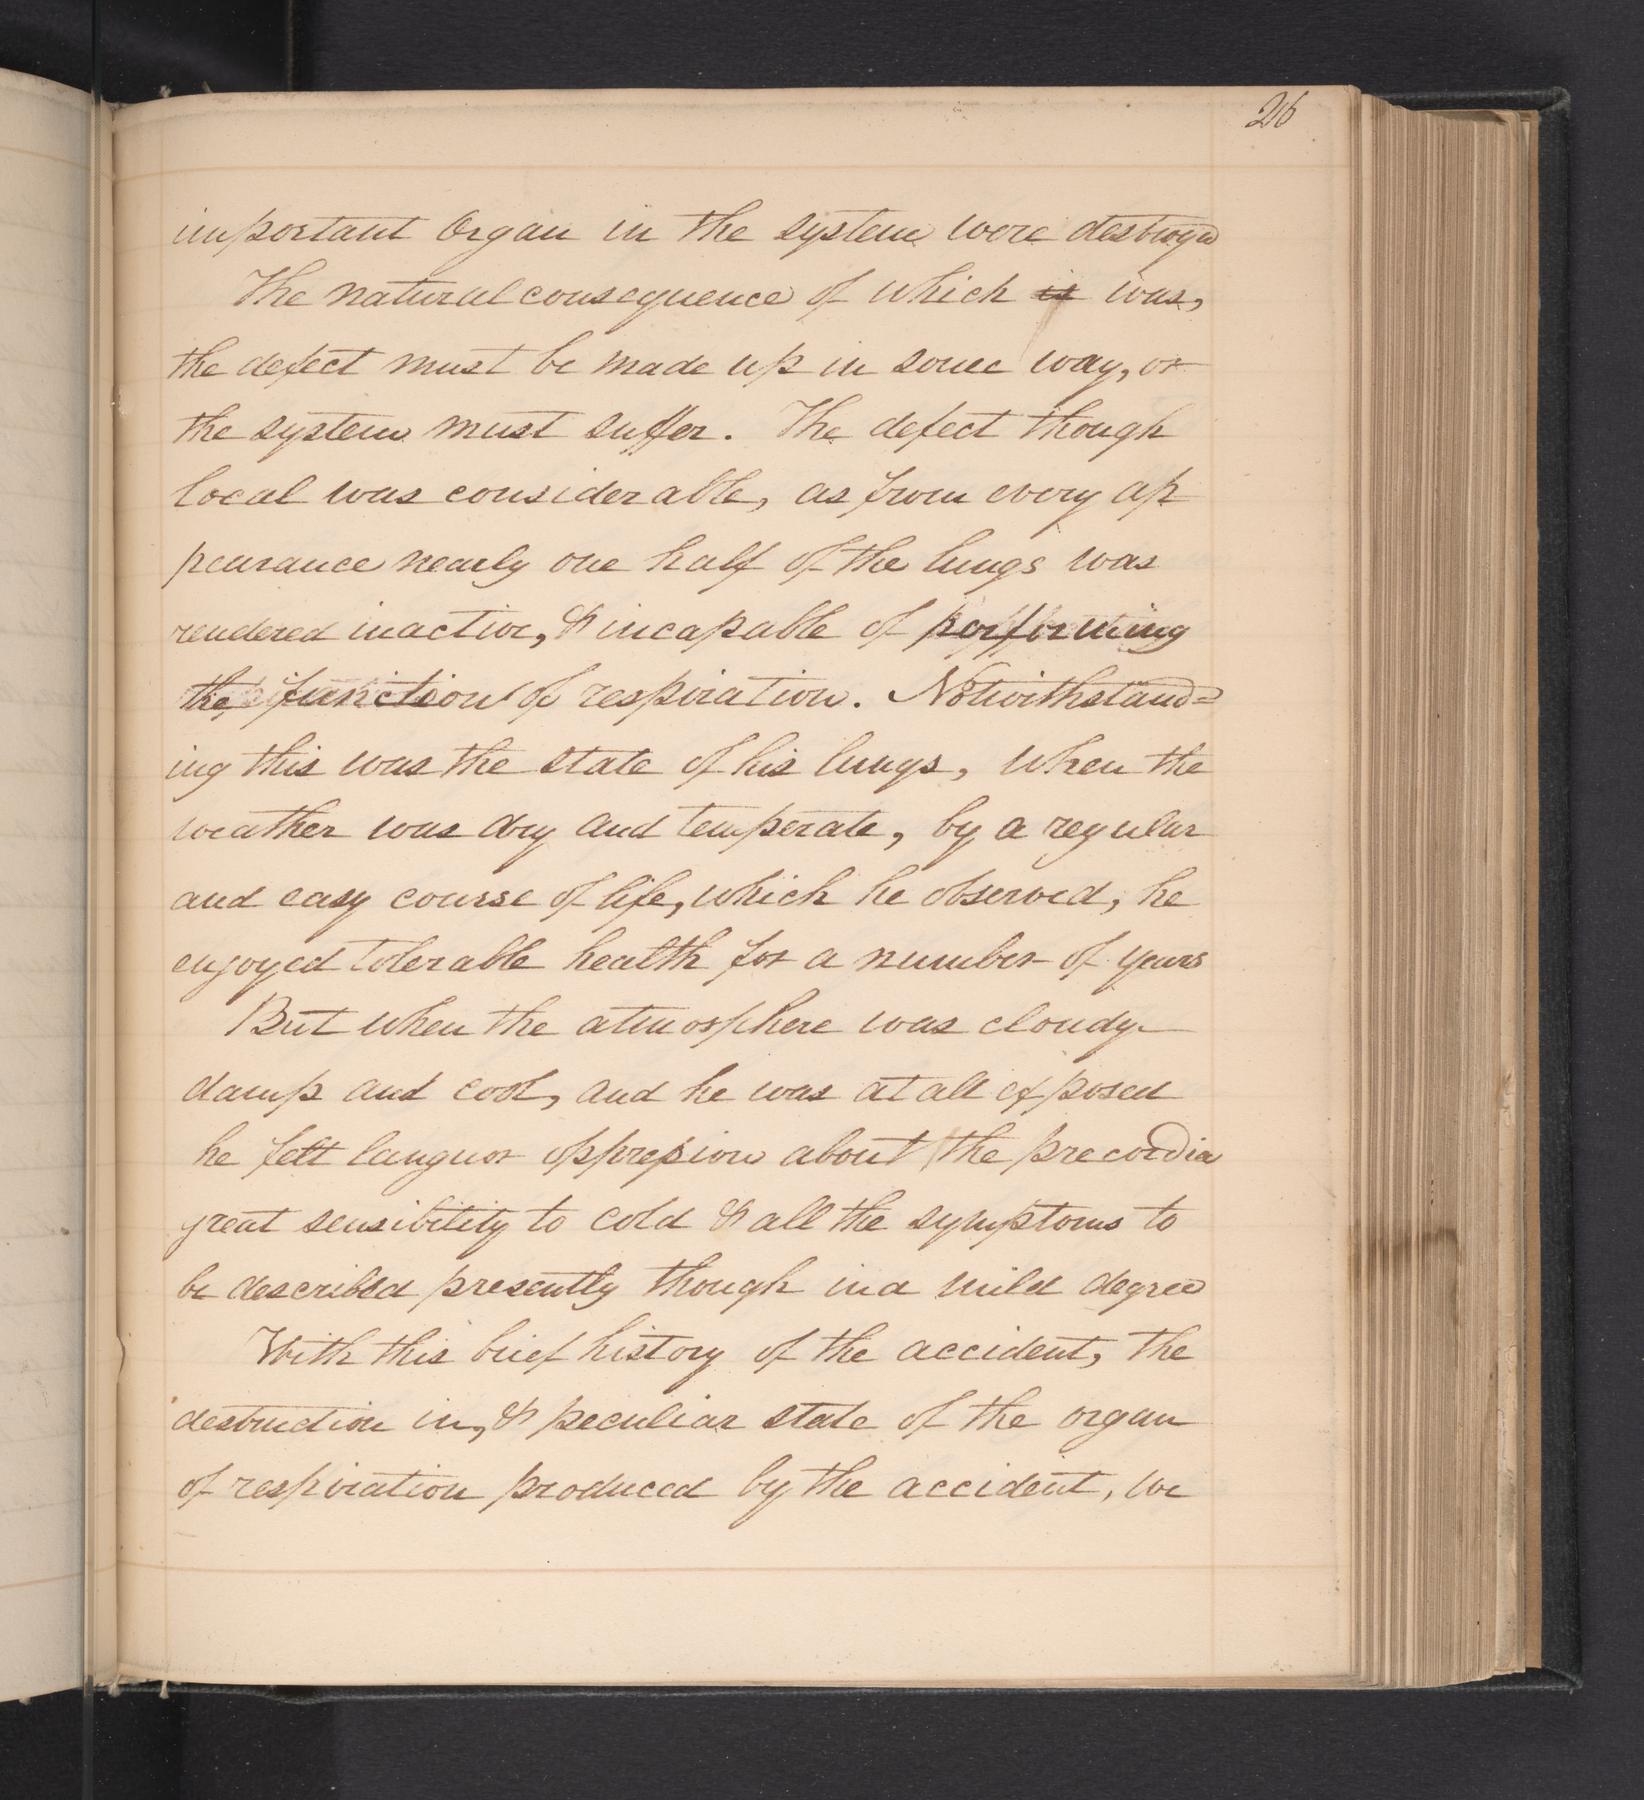 26
important Organ in the system were destroyed
The natural consequence of which is was,
the defect must be made up in some way, or
the system must suffer. The defect though
local was considerable, as from every ap
pearance nearly one half of the lungs was
rendered inactive, & incapable of performing
the function of respiration. Notwithstand=
ing this was the state of his lungs, when the
weather was dry and temperate, by a regular
and easy course of life, which he observed, he
enjoyed tolerable health for a number of years
But when the atmosphere was cloudy
damp and cool, and he was at all exposed
he felt languor oppression about the precordia
great sensibility to cold & all the symptoms to
be described presently though in a mild degree
With this brief history of the accident, the
destruction in, & peculiar state of the organ
of respiration produced by the accident, we